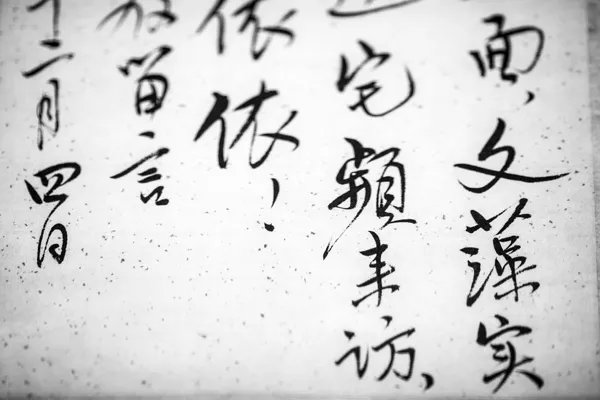 面、文藻实
宅頻来访、
依依!
留言
十二月四日